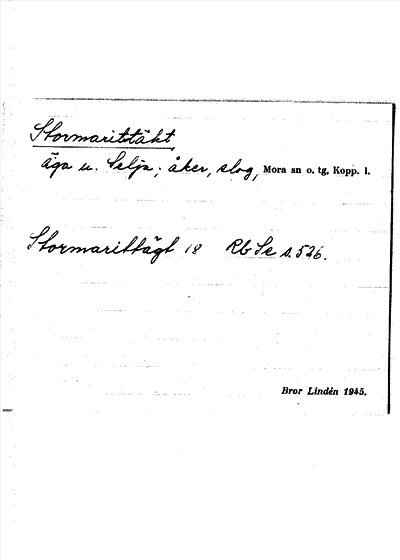 Stormaritstäkt,
äga u. Selja; åker, slog, Mora sn o. tg, Kopp. l.
Stormarittägt 18 Rb Se s. 526.
Bror Lindén 1945.